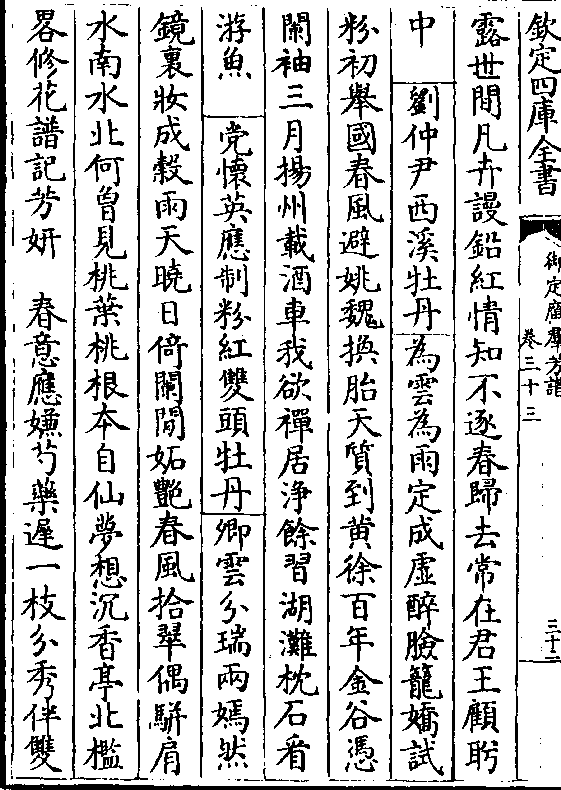 欽定四庫全書
御定廣羣芳譜
卷三十三
三十二
露世間凡卉謾鉛紅情知不逐春歸去常在君王顧盼
中 劉仲尹西溪牡丹 為雲為雨定成虛醉臉籠嬌試
粉初舉國春風避姚魏換胎天質到黃徐百年金谷憑
闌袖三月揚州載酒車我欲禪居淨餘習湖灘枕石看
游魚 党懷英應制粉紅雙頭牡丹 卿雲分瑞兩嫣然
鏡裏妝成穀雨天曉日倚闌閒妬艷春風拾翠偶駢肩
水南水北何曾見桃葉桃根本自仙夢想沉香亭北檻
畧修花譜記芳妍 春意應嫌芍藥遲一枝分秀伴雙